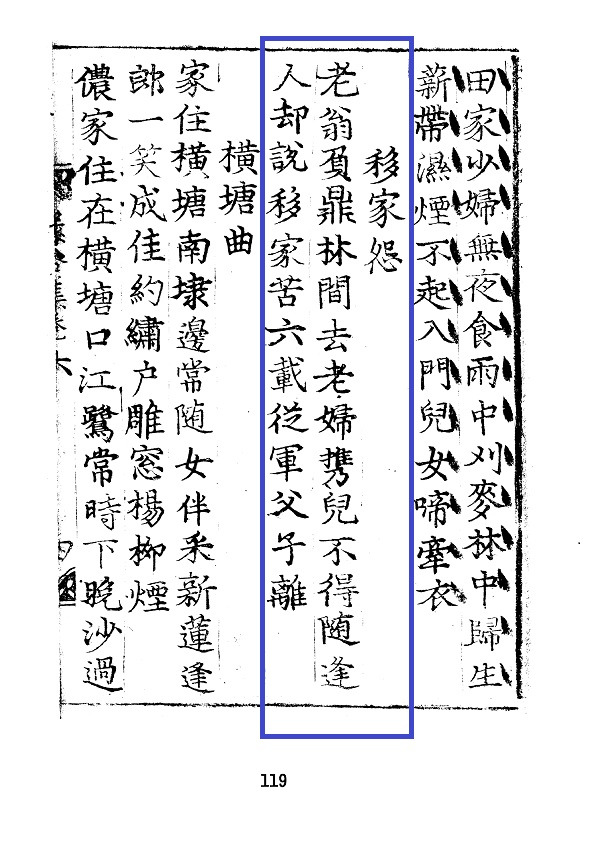 田家少婦無夜食雨中刈麥林中歸生
薪帶濕煙不起入門兒女啼牽衣
移家怨
老翁負鼎林間去老婦携兒不得随逢
人却說移家苦六載從軍父子離
横塘曲
家住横塘南埭邊常随女伴采新蓮逢
郎一笑成佳約繡户雕窓楊柳煙
儂家住在横塘口江鷺常時下晚沙過
集卷六
119